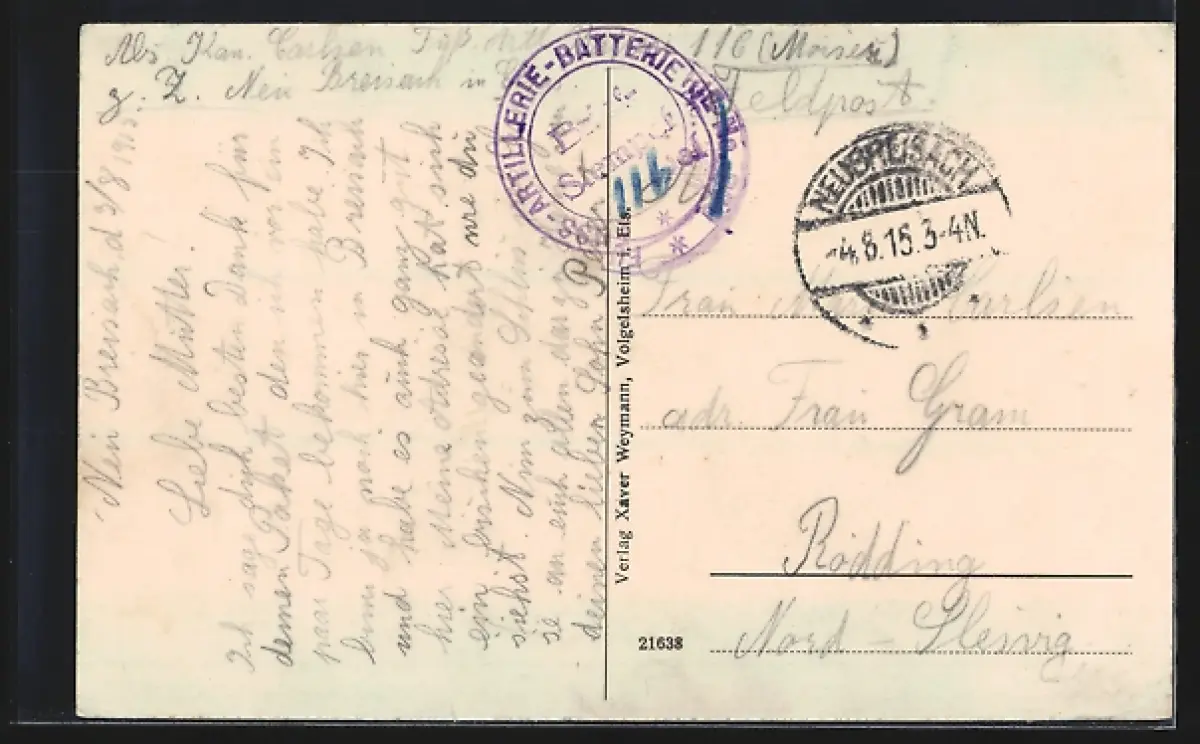 Abs. Kan. Carlsen Fuß-Artl. 116 (Moisen)
z. Z. Neu Breisach in
Feldpost.
FUSS-ARTILLERIE-BATTERIE
Stempel
116
NEUBREISACH
-4.8.15.3-4N.
Neu Breisach, d 3/8 1915
Liebe Mutter.
Ich sage dich besten Dank für
deinen Paket den ich vor ein
paar Tage bekommen habe Ich
binn ja noch hier in Breisach
und habe es auch ganz gut
hier Meine Adresse hat sich
ein bischen geandert wie du
siehst. Nun zum Schluss
se an euch allen
deinen lieber Sohn
Verlag Xaver Weymann, Volgelsheim i. Els.
Frau Carlsen
adr. Frau Gram
Rödding
Nord - Slesvig
21638